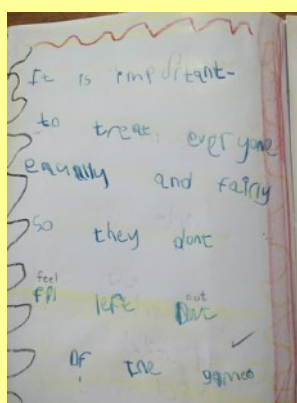 It is important-
to treat everyone
equally and fairly
so they dont
feel out
left
Of the games